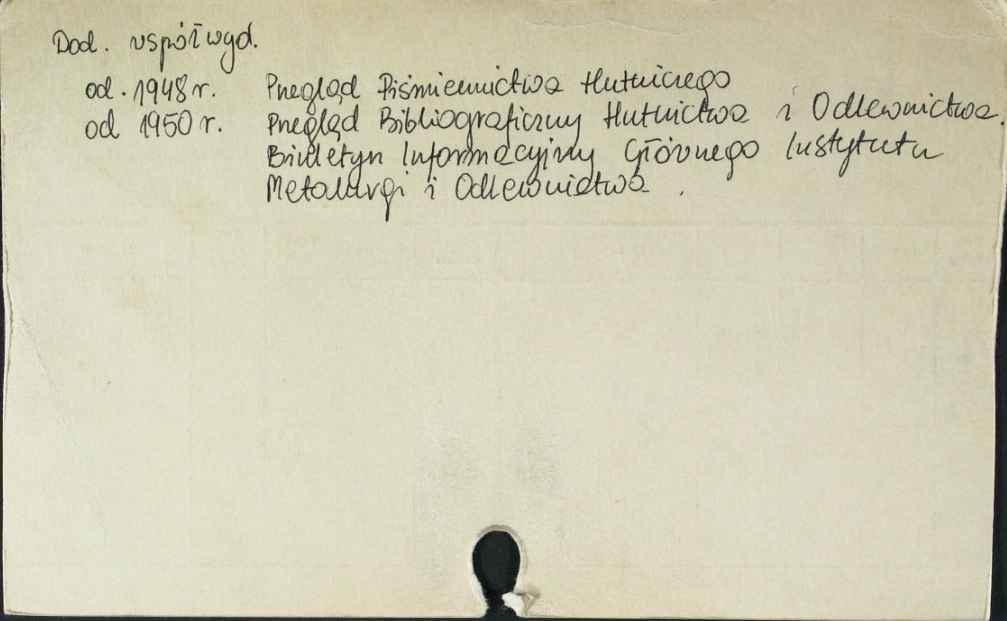 Dod. współwyd.
od. 1948 r. Przegląd Piśmiennictwa Hutniczego
od 1950 r. Przegląd Bibliograficzny Hutnictwa i Odlewnictwa.
Biuletyn Informacyjny Głównego Instytutu
Metalurgi i Odlewnictwa.